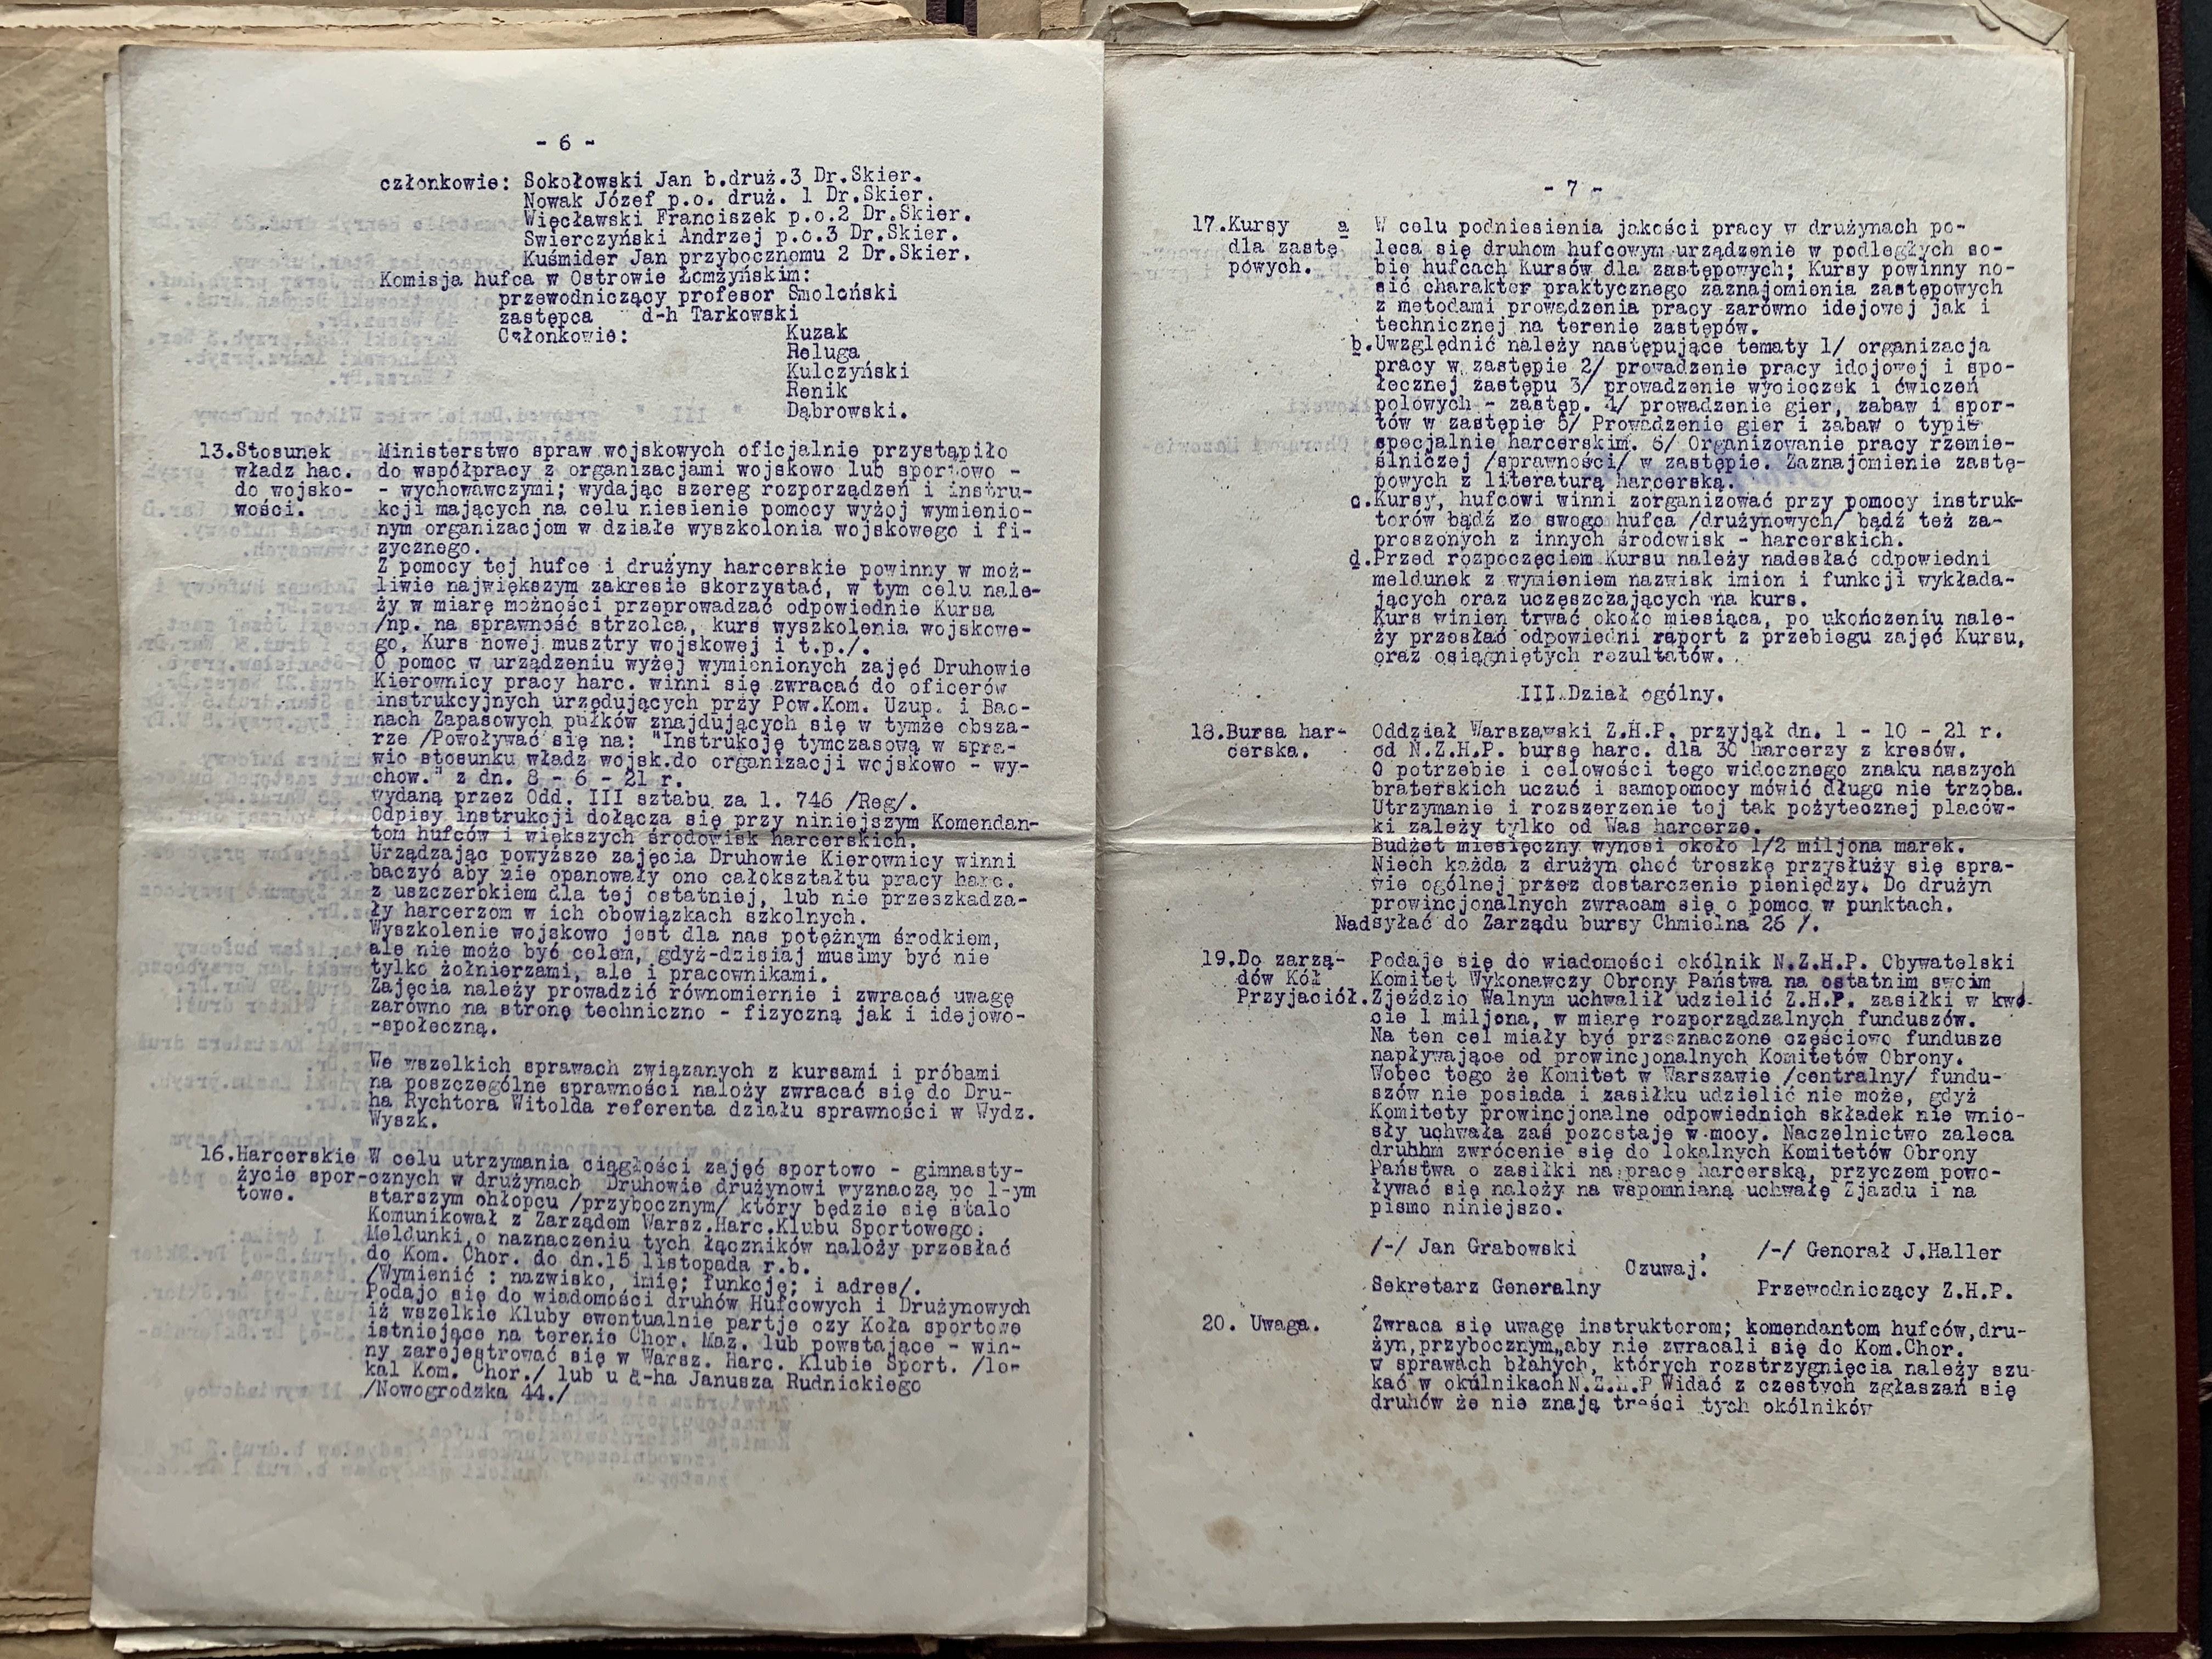 - 6 -
członkowie: Sokołowski Jan b.druż.3 Dr.Skier.
Nowak Józef p.o. druż. 1 Dr.Skier.
Więcławski Franciszek p.o.2 Dr.Skier.
Swierczyński Andrzej p.o.3 Dr.Skier.
Kuśmider Jan przybocznomu 2 Dr.Skier.
Komisja hufca w Ostrowie Łomżyńskim:
przewodniczący profesor Smoleński
zastępca d-h Tarkowski
Członkowie: Kuzak
Reluga
Kulczyński
Renik
Dąbrowski.
13.Stosunek Ministerstwo spraw wojskowych oficjalnie przystąpiło
władz hac. do współpracy z organizacjami wojskowo lub sportowo -
do wojsko- - wychowawczymi; wydając szereg rozporządzeń i instru-
wości. kcji mających na celu niesienie pomocy wyżej wymienio-
nym organizacjom w dziale wyszkolenia wojskowego i fi-
zycznego.
Z pomocy tej hufce i drużyny harcerskie powinny w moż-
liwie największym zakresie skorzystać, w tym celu nale-
ży w miarę możności przeprowadzać odpowiednie Kursa
/np. na sprawność strzelca, kurs wyszkolenia wojskowe-
go, Kurs nowej musztry wojskowej i t.p./.
O pomoc w urządzeniu wyżej wymienionych zajęć Druhowie
Kierownicy pracy harc. winni się zwracać do oficerów
instrukcyjnych urzędujących przy Pow.Kom. Uzup. i Bao-
nach Zapasowych pułków znajdujących się w tymże obsza-
rze /Powoływać się na: "Instrukcję tymczasową w spra-
wie stosunku władz wojsk.do organizacji wojskowo - wy-
chow." z dn. 8 - 6 - 21 r.
wydaną przez Odd. III sztabu za l. 746 /Reg/.
Odpisy instrukcji dołącza się przy niniejszym Komendan-
tom hufców i większych środowisk harcerskich.
Urządzając powyższe zajęcia Druhowie Kierownicy winni
baczyć aby nie opanowały ono całokształtu pracy harc.
z uszczerbkiem dla tej ostatniej, lub nie przeszkadza-
ły harcerzom w ich obowiązkach szkolnych.
Wyszkolenie wojskowo jest dla nas potężnym środkiem,
ale nie może być celem, gdyż-dzisiaj musimy być nie
tylko żołnierzami, ale i pracownikami.
Zajęcia należy prowadzić równomiernie i zwracać uwagę
zarówno na stronę techniczno - fizyczną jak i idejowo-
-społeczną.
We wszelkich sprawach związanych z kursami i próbami
na poszczególne sprawności należy zwracać się do Dru-
ha Rychtera Witolda referenta działu sprawności w Wydz.
Wyszk.
16.Harcerskie W celu utrzymania ciągłości zajęć sportowo - gimnasty-
życie spor-cznych w drużynach Druhowie drużynowi wyznaczą po 1-ym
towe. starszym chłopcu /przybocznym/ który będzie się stale
Komunikował z Zarządem Warsz.Harc.Klubu Sportowego.
Meldunki o naznaczeniu tych łączników należy przesłać
do Kom. Chor. do dn.15 listopada r.b.
/Wymienić : nazwisko, imię; funkcję; i adres/.
Podaje się do wiadomości druhów Hufcowych i Drużynowych
iż wszelkie Kluby ewentualnie partje czy Koła sportowe
istniejące na terenie Chor. Maz. lub powstające - win-
ny zarejestrować się w Warsz. Harc. Klubie Sport. /lo-
kal Kom. Chor./ lub u d-ha Janusza Rudnickiego
/Nowogrodzka 44./
- 7 -
17.Kursy a W celu podniesienia jakości pracy w drużynach po-
dla zastę leca się druhom hufcowym urządzenie w podległych so-
powych. bie hufcach Kursów dla zastępowych; Kursy powinny no-
sić charakter praktycznego zaznajomienia zastępowych
z metodami prowadzenia pracy zarówno idejowej jak i
technicznej na terenie zastępów.
b.Uwzględnić należy następujące tematy 1/ organizacja
pracy w zastępie 2/ prowadzenie pracy idejowej i spo-
łecznej zastępu 3/ prowadzenie wycieczek i ćwiczeń
polowych - zastęp. 4/ prowadzenie gier, zabaw i spor-
tów w zastępie 5/ Prowadzenie gier i zabaw o typie
specjalnie harcerskim. 6/ Organizowanie pracy rzemie-
ślniczej /sprawności/ w zastępie. Zaznajomienie zastę-
powych z literaturą harcerską.
c.Kursy, hufcowi winni zorganizować przy pomocy instruk-
torów bądź ze swego hufca /drużynowych/ bądź też za-
proszonych z innych środowisk - harcerskich.
d.Przed rozpoczęciem Kursu należy nadesłać odpowiedni
meldunek z wymieniem nazwisk imion i funkcji wykłada-
jących oraz uczęszczających na kurs.
Kurs winien trwać około miesiąca, po ukończeniu nale-
ży przesłać odpowiedni raport z przebiegu zajęć Kursu,
oraz osiągniętych rezultatów.
III.Dział ogólny.
18.Bursa har- Oddział Warszawski Z.H.P. przyjął dn. 1 - 10 - 21 r.
cerska. od N.Z.H.P. bursę harc. dla 30 harcerzy z kresów.
O potrzebie i celowości tego widocznego znaku naszych
braterskich uczuć i samopomocy mówić długo nie trzeba.
Utrzymanie i rozszerzenie tej tak pożytecznej placów-
ki zależy tylko od Was harcerze.
Budżet miesięczny wynosi około 1/2 miljona marek.
Niech każda z drużyn choć troszkę przysłuży się spra-
wie ogólnej przez dostarczenie pieniędzy. Do drużyn
prowincjonalnych zwracam się o pomoc w punktach.
Nadsyłać do Zarządu bursy Chmielna 26 /.
19.Do zarzą- Podaje się do wiadomości okólnik N.Z.H.P. Obywatelski
dów Kół Komitet Wykonawczy Obrony Państwa na ostatnim swoim
Przyjaciół.Zjeździe Walnym uchwalił udzielić Z.H.P. zasiłki w kwo-
cie 1 miljona, w miarę rozporządzalnych funduszów.
Na ten cel miały być przeznaczone częściowo fundusze
napływające od prowincjonalnych Komitetów Obrony.
Wobec tego że Komitet w Warszawie /centralny/ fundu-
szów nie posiada i zasiłku udzielić nie może, gdyż
Komitety prowincjonalne odpowiednich składek nie wnio-
sły uchwała zaś pozostaje w mocy. Naczelnictwo zaleca
druhhm zwrócenie się do lokalnych Komitetów Obrony
Państwa o zasiłki na pracę harcerską, przyczem powo-
ływać się należy na wspomnianą uchwałę Zjazdu i na
pismo niniejsze.
/-/ Jan Grabowski /-/ Generał J.Haller
Czuwaj.
Sekretarz Generalny Przewodniczący Z.H.P.
20. Uwaga. Zwraca się uwagę instruktorom; komendantom hufców,dru-
żyn,przybocznym,,aby nie zwracali się do Kom.Chor.
w sprawach błahych, których rozstrzygnięcia należy szu-
kać w okólnikach N.Z.H.P Widać z częstych zgłaszań się
druhów że nie znają treści tych okólników